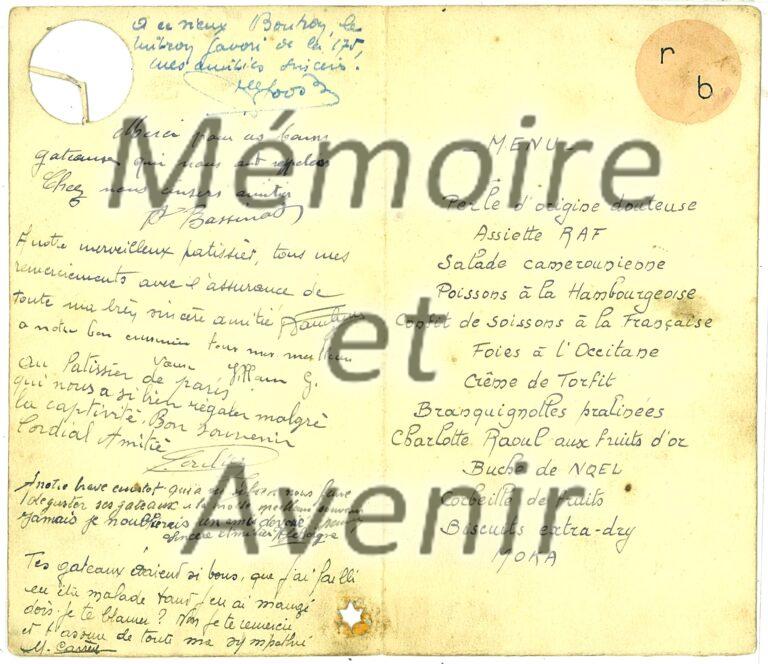 A ce vieux Boutroy, le
mitron favori de la 175,
mes amitiés
Merci pour vos bons
gateaux qui nous ont
Chez nous
Bassinot
A notre merveilleux patissier, tous mes
remerciements avec l'assurance de
toute ma très sincère amitié
a notre bon tous mes
William G.
au Patissier de paris
qui nous a si bien régaler malgré
la captivité. Bon Souvenir
Cordial Amitié
A notre brave
déguster ses gateaux
Jamais je n'oublierais un ami
Sincère
Tes gateaux étaient si bons, que j'ai failli
en être malade tant j'en ai mangé
dois-je te blamer? Non je te remercie
et t'assure de toute ma sympathie
M.
r
b
MENU
Perle d'origine douteuse
Assiette RAF
Salade camerounienne
Poissons à la Hambourgeoise
de Soissons à la Française
Foies à l'Occitane
Crême de Torfit
Branquignolles pralinées
Charlotte Raoul aux fruits d'or
Buche de NOEL
Corbeille de fruits
Biscuits extra-dry
MOKA
Mémoire
et
Avenir